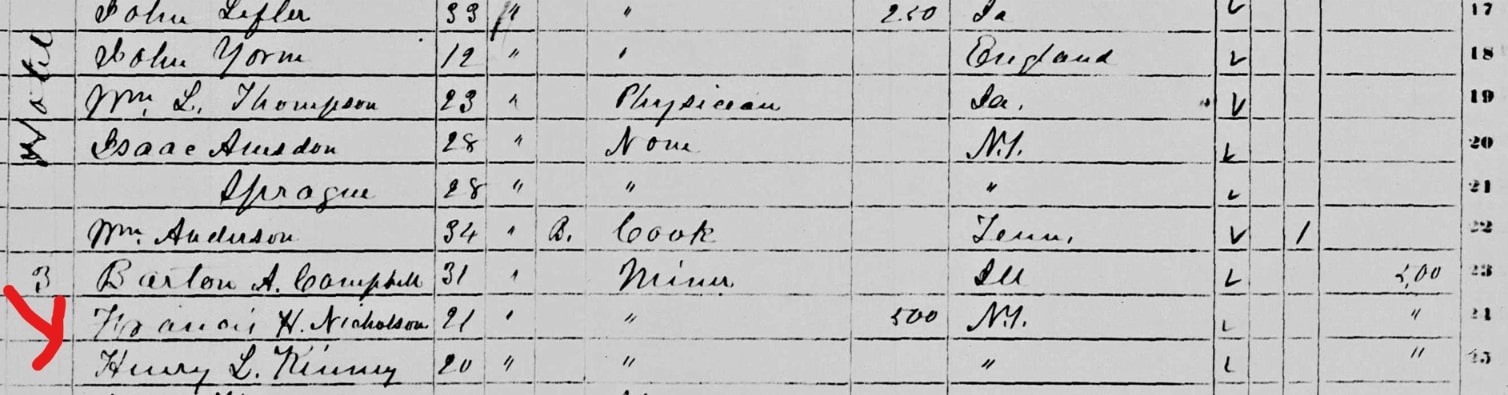 John Lefler 33 " " 250 Ia ✓ 17
Hotel
John Yorm 12 " " England ✓ 18
Wm L. Thompson 23 " Physician Ia. ✓ 19
Isaac Amsdon 28 " None N.Y. ✓ 20
Sprague 28 " " " ✓ 21
Wm Anderson 34 " B. Cook Tenn. ✓ 1 22
3 Barton A. Campbell 31 " Miner Ill ✓ 500 23
Francis H. Nicholson 21 " " 500 N.Y. ✓ " 24
Henry L. Kinney 20 " " " ✓ " 25